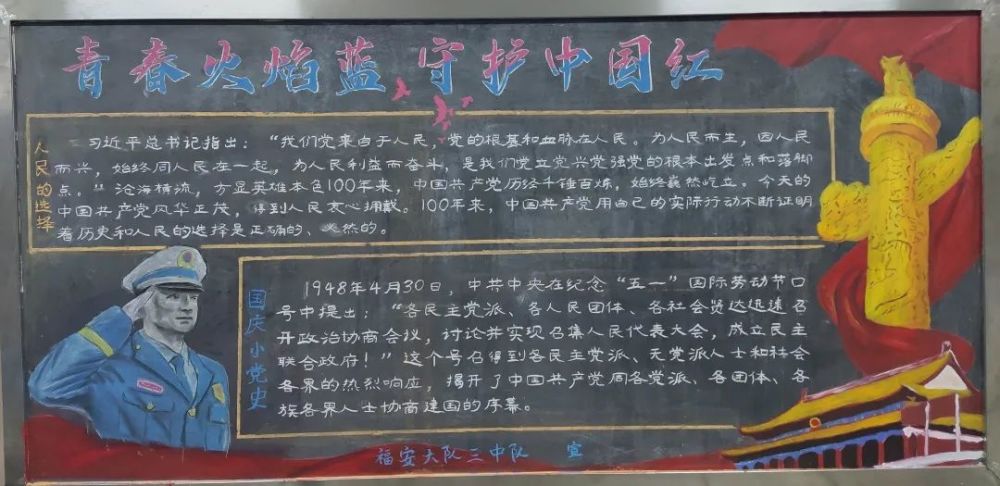 青春火焰蓝 守护中国红
人民的选择
习近平总书记指出："我们党来自于人民，党的根基和血脉在人民。为人民而生，因人民
而兴，始终同人民在一起，为人民利益而奋斗，是我们党立党兴党强党的根本出发点和落脚
点。"沧海横流，方显英雄本色100年来，中国共产党历经千锤百炼，始终巍然屹立。今天的
中国共产党风华正茂，得到人民衷心拥戴。100年来，中国共产党用自己的实际行动不断证明
着历史和人民的选择是正确的、必然的。
国庆小党史
1948年4月30日，中共中央在纪念"五一"国际劳动节口
号中提出："各民主党派、各人民团体、各社会贤达迅速召
开政治协商会议，讨论并实现召集人民代表大会，成立民主
联合政府！"这个号召得到各民主党派、无党派人士和社会
各界的热烈响应，揭开了中国共产党同各党派、各团体、各
族各界人士协商建国的序幕。
福安大队三中队 宣